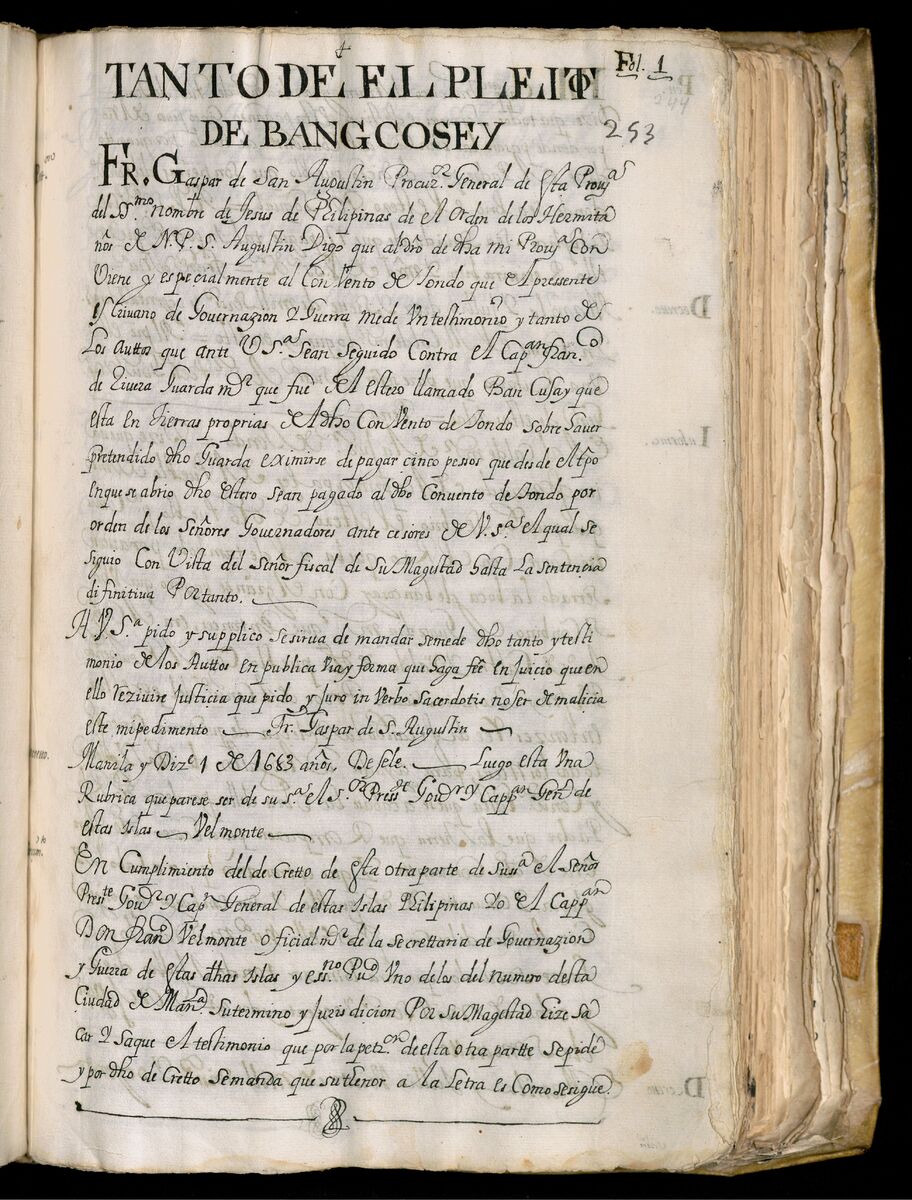 TANTO DE EL PLEITO
Fol. 1
DE BANGCOSEY
253
FR. Gaspar de San Augustin Procur.or General de esta Prouy.a
del S.mo nombre de Jesus de Philipinas de el orden de los Hermita
ños de N. P. S. Augustin Digo que al dro de dha mi Prouy.a Con
Viene y especialmente al Convento de tondo que el pressente
escrivano de Governazion y Guerra me de Un testimonio y tanto de
Los Auttos que ante V S.a sean seguido Contra el Cap.an fran.co
de Rivera Guarda m.r que fue de el estero llamado Ban Cusay que
esta en tierras proprias de el dho Convento de tondo sobre haver
pretendido dho Guarda eximirse de pagar cinco pessos que desde el tpo
en que se abrio dho estero sean pagado al dho Convento de tondo por
orden de los Señores Governadores ante cesores de V. s.a el qual se
siguio Con Vista del Señor fiscal de su Magestad hasta La sentencia
difinitiva Por tanto.
A V S.a pido y supplico se sirva de mandar se me de dho tanto y testi
monio de los Auttos en publica via y forma que haga feê en juicio que en
ello rezivire justicia que pido, y juro in Verbo sacerdotis no ser de malicia
este mi pedimento Fr. Gaspar de s. Augustin
Manila y Diz.e 1 de 1683 años. Desele. Luego esta Una
Rubrica que parese ser de su s.a el s.or Press.te Gov.r y Capp.an Gen.l de
estas Islas Velmonte
En Cumplimiento del de Cretto de esta otra parte de su s.a el Señor
Pres.te Gov.r y Cap.n General de estas Islas Philipinas Yo el Capp.an
Don fran.co Velmonte oficial m.r de la secrettaria de Governazion
y Guerra de estas dhas Islas y ess.no Pu.co Uno de los del numero desta
Ciudad de Man.a su termino y Juris dicion Por su Magestad hize sa
car y saque el testimonio que por la pet.on de esta otra partte se pide
y por dho de Cretto se manda que su thenor a la Letra es Como se sigue.